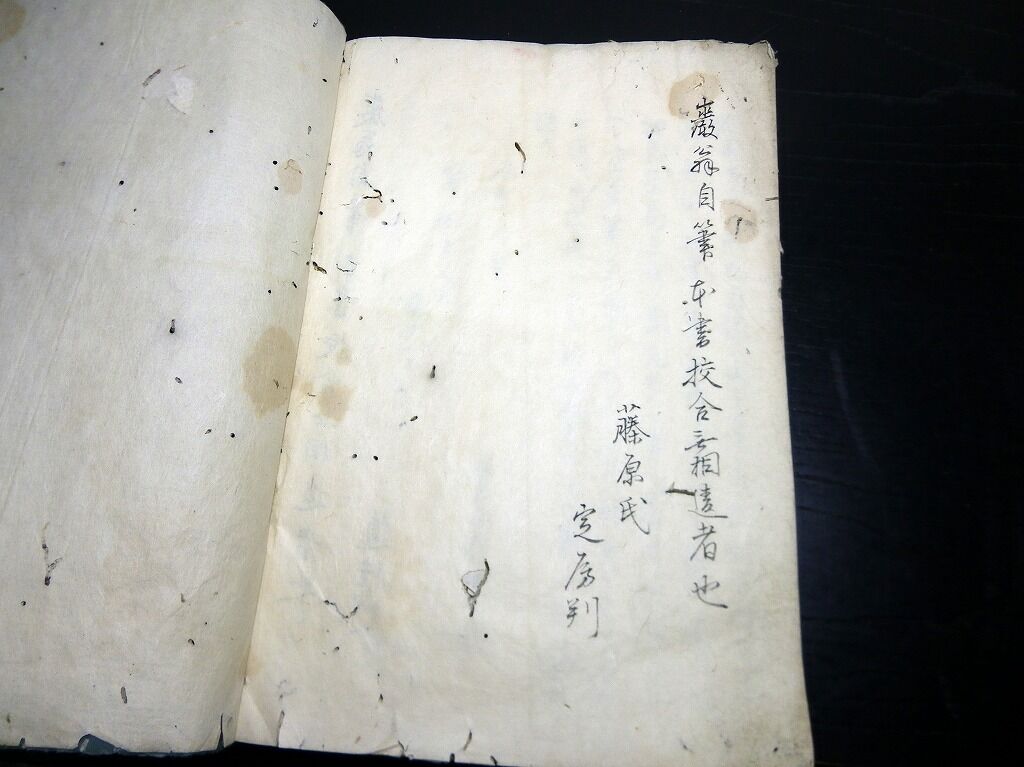 巌翁自筆本書校合無相違者也
藤原氏
定房判